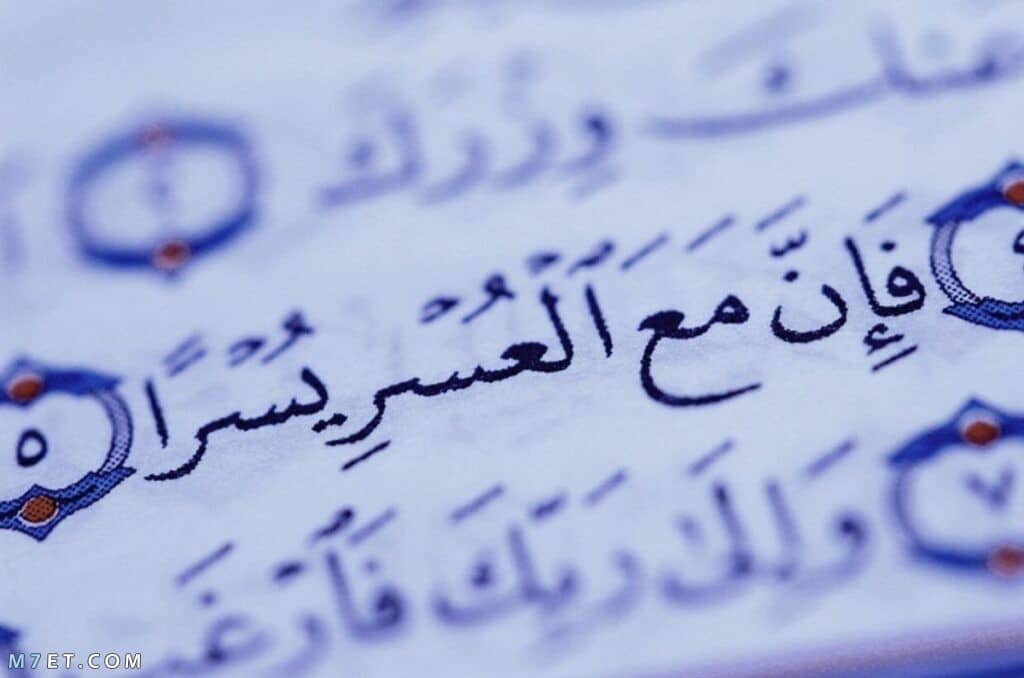 عنك وِزْرَكَ ٢
فَإِنَّ مَعَ ٱلْعُسْرِ يُسْرًا ٥
٧ وَإِلَىٰ رَبِّكَ فَٱرْغَب
M7ET.COM